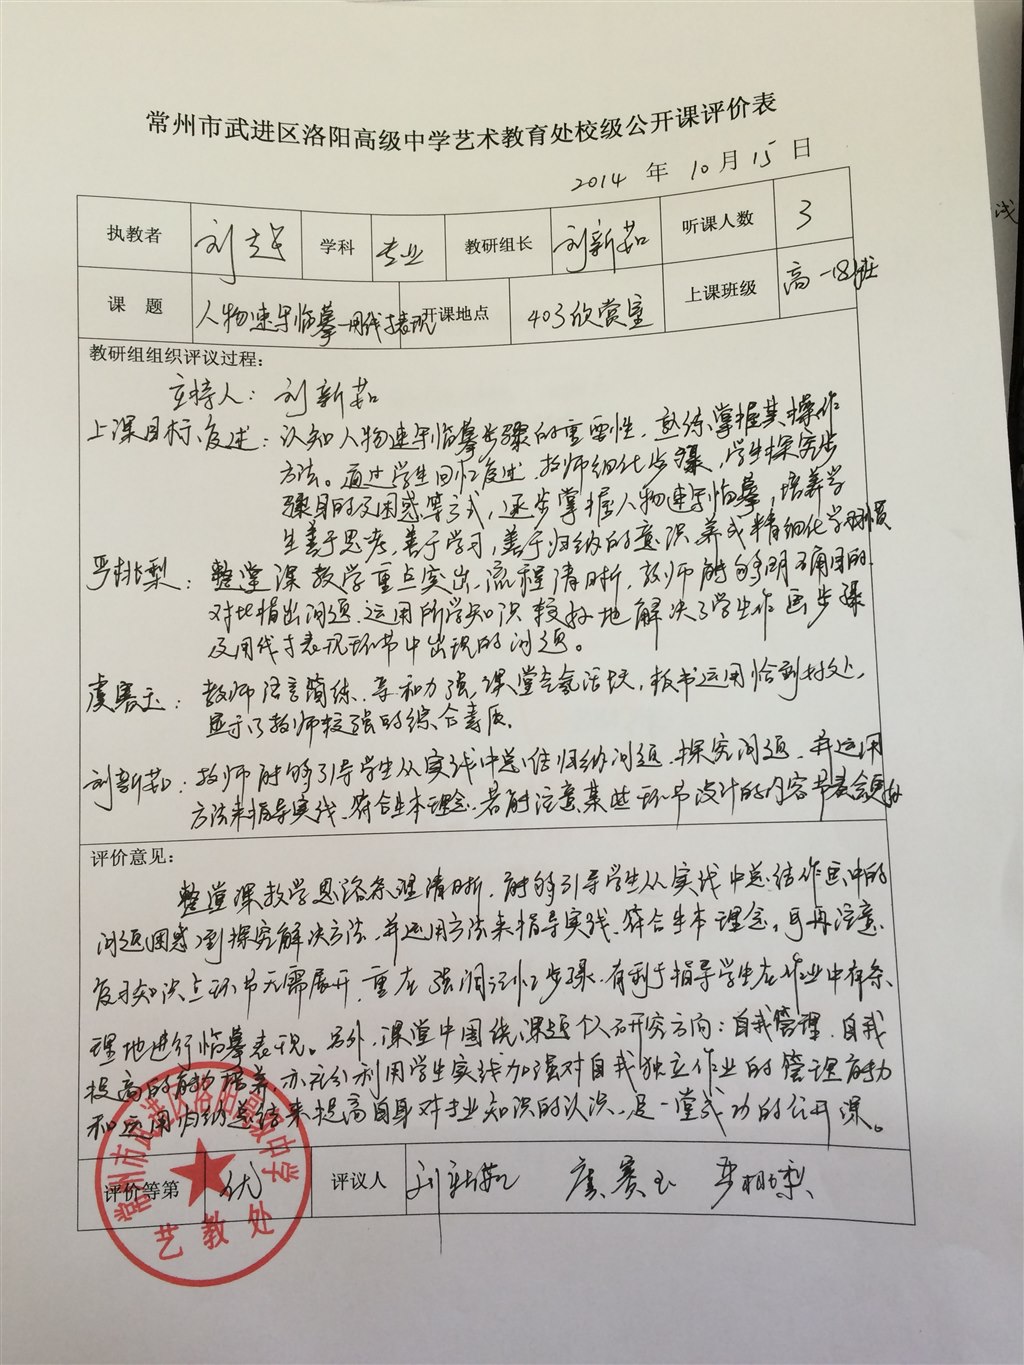 常州市武进区洛阳高级中学艺术教育处校级公开课评价表
2014 年 10 月 15 日
执教者 刘 学科 专业 教研组长 刘新茹 听课人数 3
课 题 人物速写临摹—用线才表现 开课地点 403欣赏室 上课班级 高一18班
教研组组织评议过程：
主持人：刘新茹
上课目标复述：认知人物速写临摹步骤的重要性，熟练掌握其操作
方法。通过学生回忆复述，教师细化步骤，学生探究步
骤目的及困惑等方式，逐步掌握人物速写临摹，培养学
生善于思考，善于学习，善于归纳的意识，养成精细化学习习惯
严梨：整堂课教学重点突出，流程清晰，教师能够明确目的，
对比指出问题，运用所学知识较好地解决了学生作画步骤
及用线才表现环节中出现的问题。
虞赛玉：教师语言简练、亲和力强，课堂气氛活跃，板书运用恰到好处，
显示了教师较强的综合素质。
刘新茹：教师能够引导学生从实践中总结归纳问题，探究问题，并运用
方法来指导实践，符合生本理念，若能注意某些环节设计的内容节奏会更好
评价意见：
整堂课教学思路条理清晰，能够引导学生从实践中总结作画中的
问题困惑，到探究解决方法，并运用方法来指导实践，符合生本理念，可再注意
复习知识点环节无需展开，重在强调记忆步骤，有利于指导学生在作业中有条
理地进行临摹表现。另外，课堂中围绕课题个人研究方向：自我管理，自我
提高的能力培养，亦充分利用学生实践加强对自我独立作业的管理能力
和运用归纳总结来提高自身对专业知识的认识，是一堂成功的公开课。
评价等第 优 评议人 刘新茹 虞赛玉 严梨
常州市武进区洛阳高级中学
艺教处